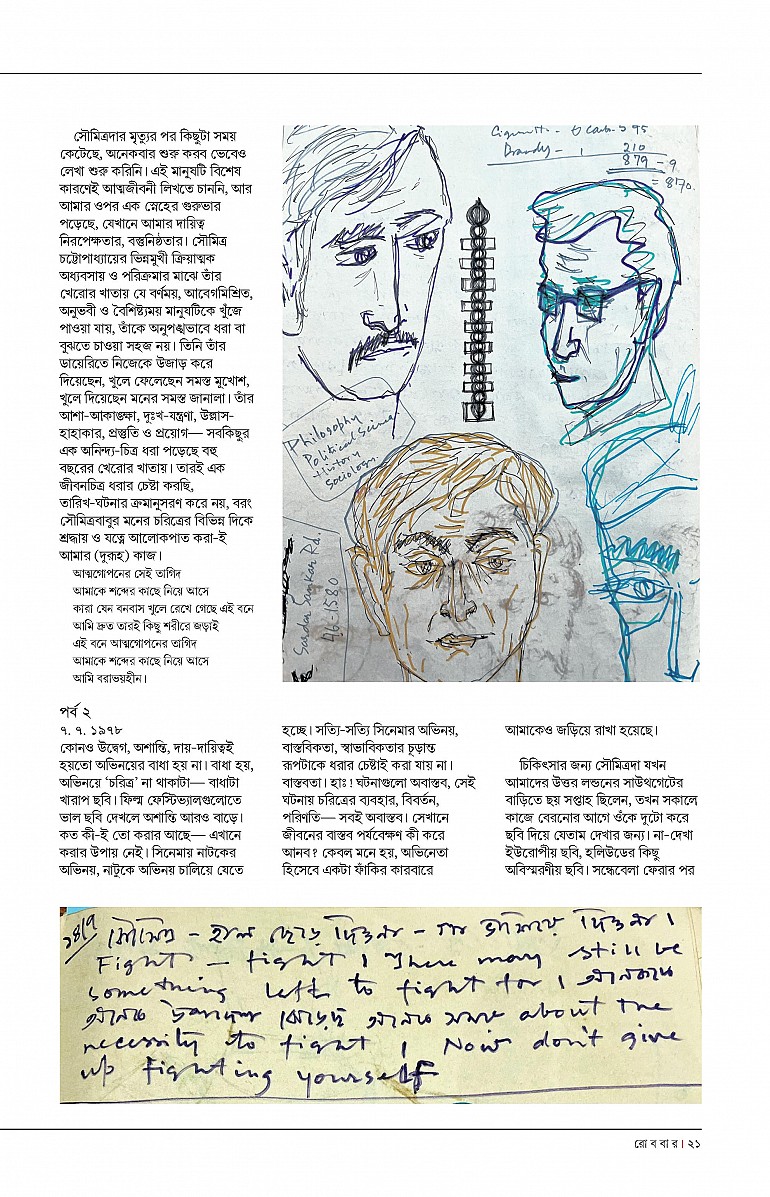 সৌমিত্রদার মৃত্যুর পর কিছুটা সময়
কেটেছে, অনেকবার শুরু করব ভেবেও
লেখা শুরু করিনি। এই মানুষটি বিশেষ
কারণেই আত্মজীবনী লিখতে চাননি, আর
আমার ওপর এক স্নেহের গুরুভার
পড়েছে, যেখানে আমার দায়িত্ব
নিরপেক্ষতার, বস্তুনিষ্ঠতার। সৌমিত্র
চট্টোপাধ্যায়ের ভিন্নমুখী ক্রিয়াত্মক
অধ্যবসায় ও পরিক্রমার মাঝে তাঁর
খেরোর খাতায় যে বর্ণময়, আবেগমিশ্রিত,
অনুভবী ও বৈশিষ্ট্যময় মানুষটিকে খুঁজে
পাওয়া যায়, তাঁকে অনুপুঙ্খভাবে ধরা বা
বুঝতে চাওয়া সহজ নয়। তিনি তাঁর
ডায়েরিতে নিজেকে উজাড় করে
দিয়েছেন, খুলে ফেলেছেন সমস্ত মুখোশ,
খুলে দিয়েছেন মনের সমস্ত জানালা। তাঁর
আশা-আকাঙ্ক্ষা, দুঃখ-যন্ত্রণা, উল্লাস-
হাহাকার, প্রস্তুতি ও প্রয়োগ— সবকিছুর
এক অনিন্দ্য-চিত্র ধরা পড়েছে বহু
বছরের খেরোর খাতায়। তারই এক
জীবনচিত্র ধরার চেষ্টা করছি,
তারিখ-ঘটনার ক্রমানুসরণ করে নয়, বরং
সৌমিত্রবাবুর মনের চরিত্রের বিভিন্ন দিকে
শ্রদ্ধায় ও যত্নে আলোকপাত করা-ই
আমার (দুরূহ) কাজ।
আত্মগোপনের সেই তাগিদ
আমাকে শব্দের কাছে নিয়ে আসে
কারা যেন বনবাস খুলে রেখে গেছে এই বনে
আমি দ্রুত তারই কিছু শরীরে জড়াই
এই বনে আত্মগোপনের তাগিদ
আমাকে শব্দের কাছে নিয়ে আসে
আমি বরাভয়হীন।
Brandy - 1 210
879 - 9
= 870
Philosophy
Political Science
History
Sociology
Sarkar Rd.
46-1580
পর্ব ২
৭. ৭. ১৯৭৮
কোনও উদ্বেগ, অশান্তি, দায়-দায়িত্বই
হয়তো অভিনয়ের বাধা হয় না। বাধা হয়,
অভিনয়ে ‘চরিত্র’ না থাকাটা— বাধাটা
খারাপ ছবি। ফিল্ম ফেস্টিভ্যালগুলোতে
ভাল ছবি দেখলে অশান্তি আরও বাড়ে।
কত কী-ই তো করার আছে— এখানে
করার উপায় নেই। সিনেমায় নাটকের
অভিনয়, নাটুকে অভিনয় চালিয়ে যেতে
হচ্ছে। সত্যি-সত্যি সিনেমার অভিনয়,
বাস্তবিকতা, স্বাভাবিকতার চূড়ান্ত
রূপটাকে ধরার চেষ্টাই করা যায় না।
বাস্তবতা। হাঃ! ঘটনাগুলো অবাস্তব, সেই
ঘটনায় চরিত্রের ব্যবহার, বিবর্তন,
পরিণতি— সবই অবাস্তব। সেখানে
জীবনের বাস্তব পর্যবেক্ষণ কী করে
আনব? কেবল মনে হয়, অভিনেতা
হিসেবে একটা ফাঁকির কারবারে
আমাকেও জড়িয়ে রাখা হয়েছে।
চিকিৎসার জন্য সৌমিত্রদা যখন
আমাদের উত্তর লন্ডনের সাউথগেটের
বাড়িতে ছয় সপ্তাহ ছিলেন, তখন সকালে
কাজে বেরনোর আগে ওঁকে দুটো করে
ছবি দিয়ে যেতাম দেখার জন্য। না-দেখা
ইউরোপীয় ছবি, হলিউডের কিছু
অবিস্মরণীয় ছবি। সন্ধেবেলা ফেরার পর
সৌমিত্র - হাল ছেড়ে দিওনা -
Fight - fight। There may still be
something left to fight for। অনেককে
অনেক উপদেশ about the
necessity to fight। Now don't give
up fighting yourself
রোববার। ২১